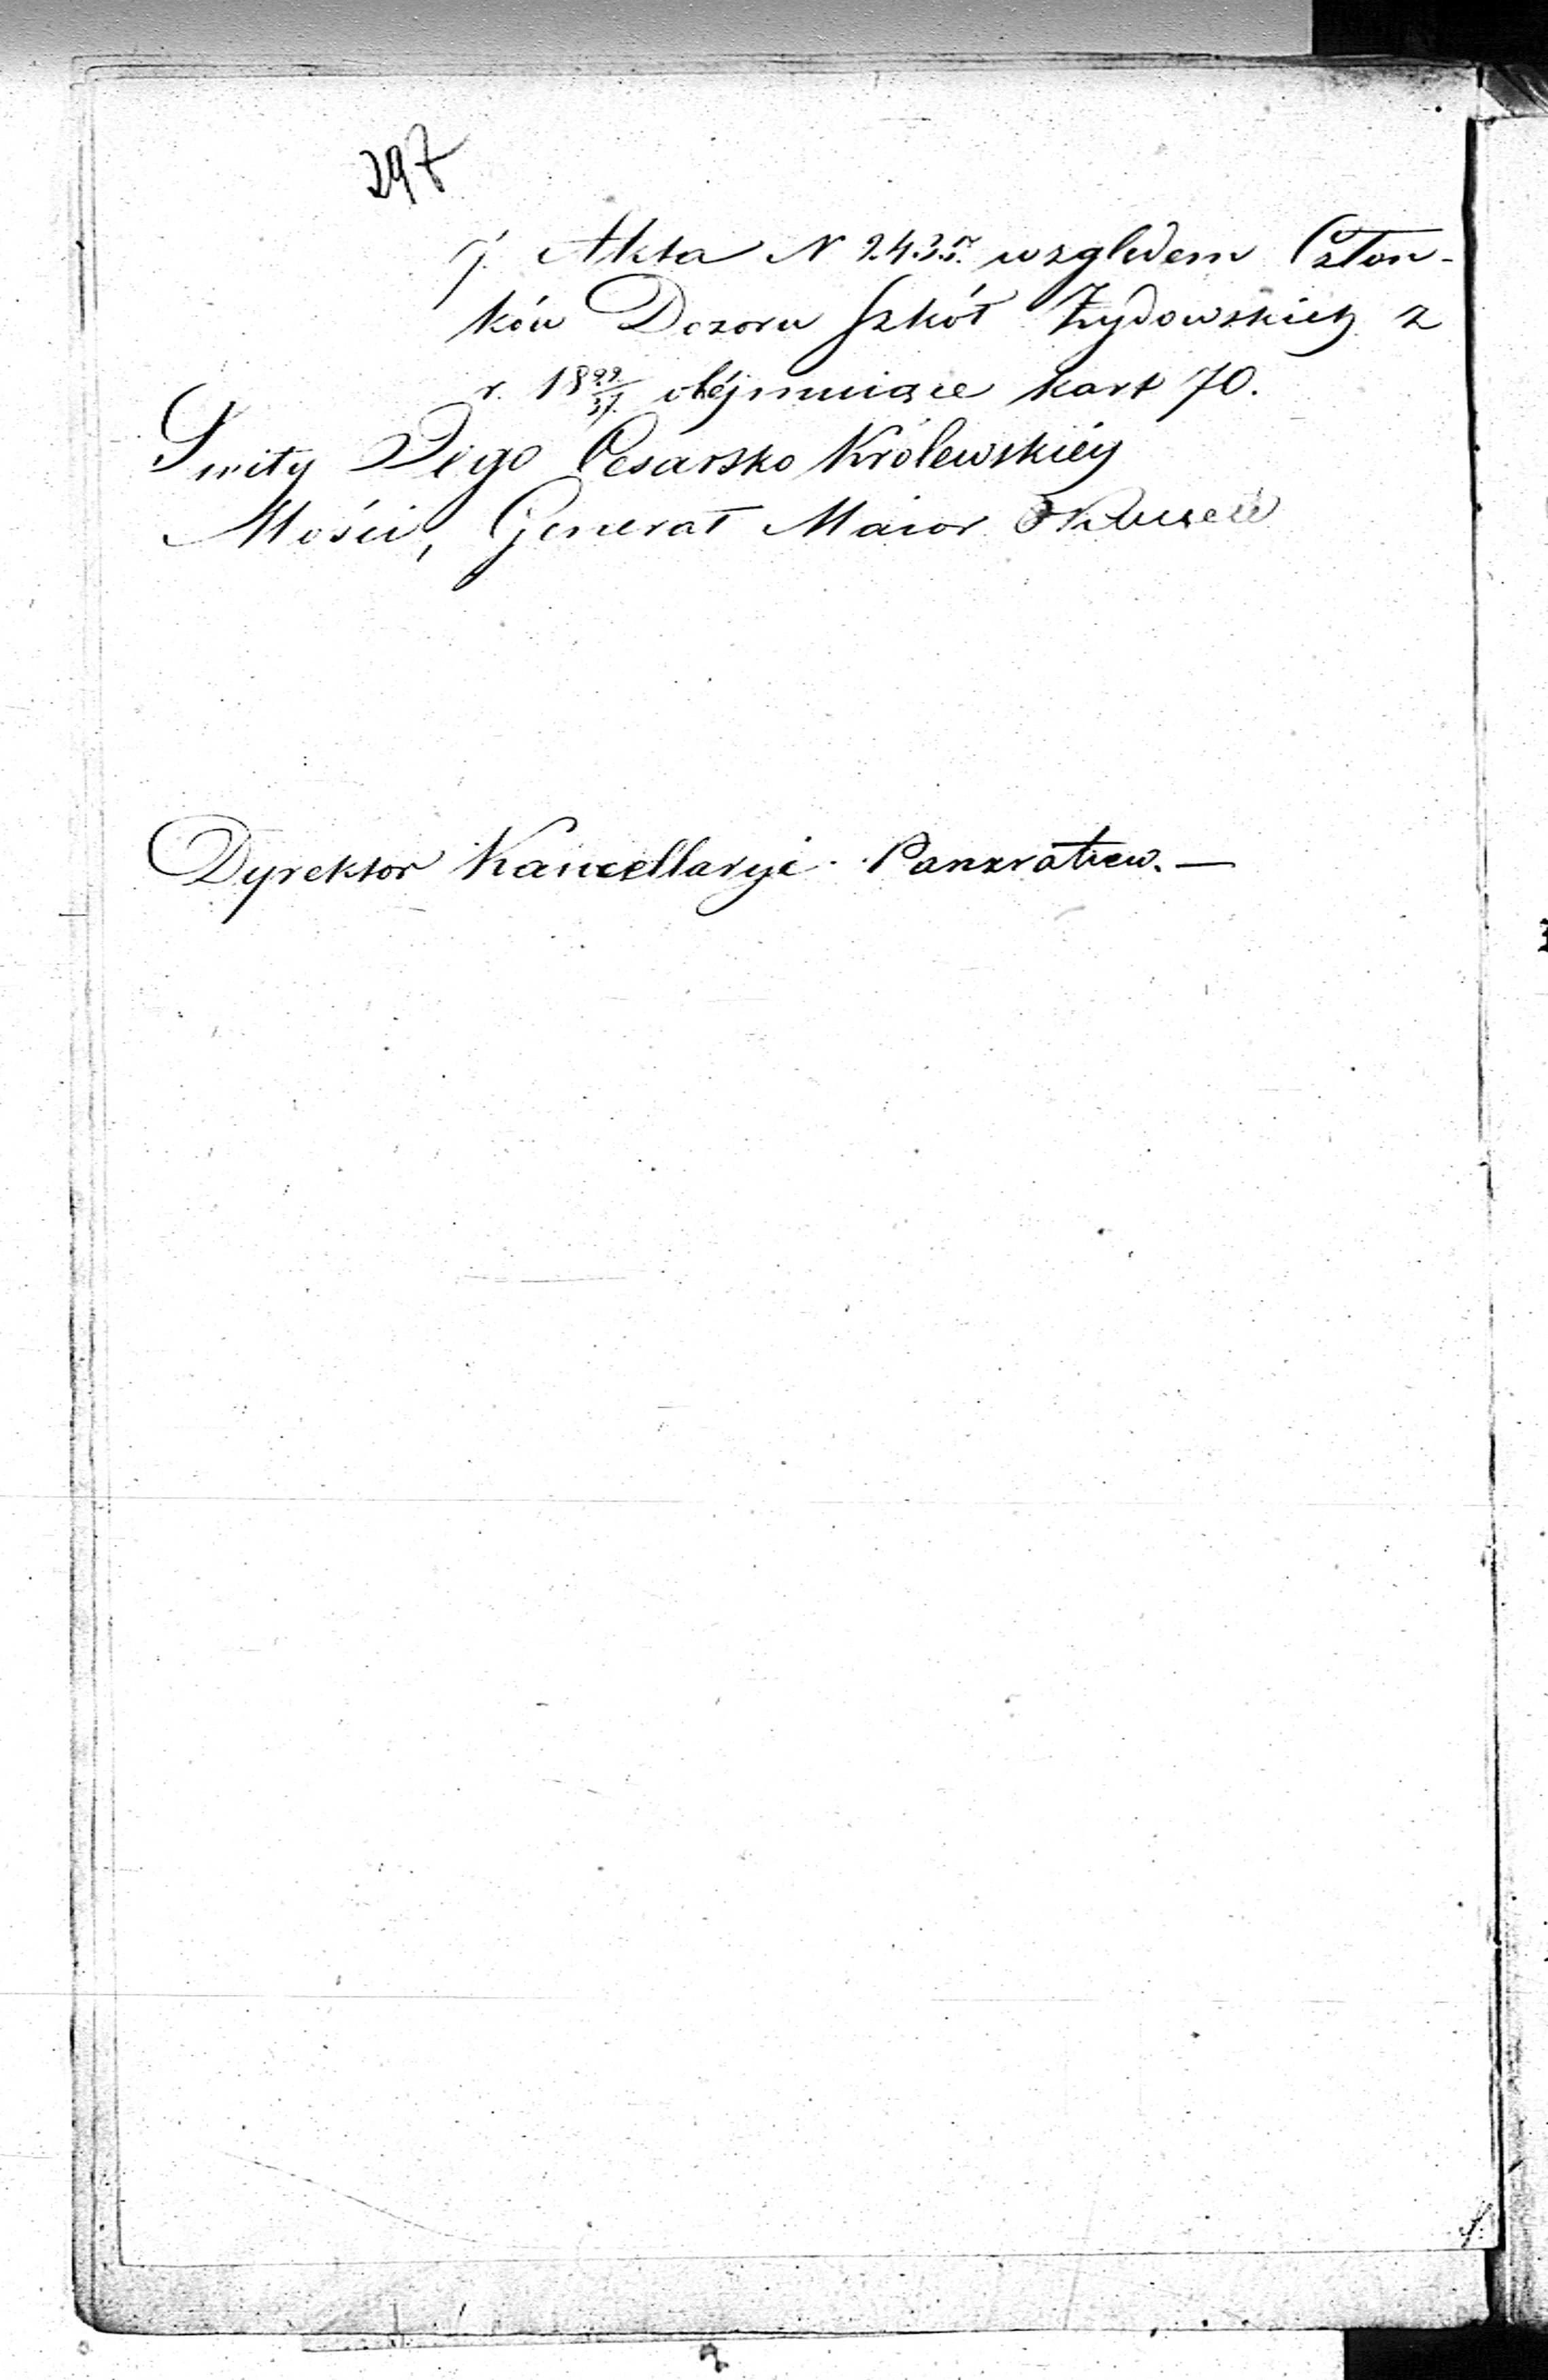 297
j. Akta N 2435. względem Człon-
ków Dozoru Szkół Żydowskich z
r. 18 29/37 obéjmuiące kart 70.
Świty Jego Cesarsko Królewskiéy
Mości, Generał Maior Okuneff
Dyrektor Kancellaryi Pankratiew. —